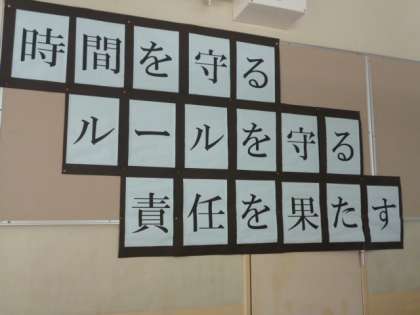 時間を守る
ルールを守る
責任を果たす